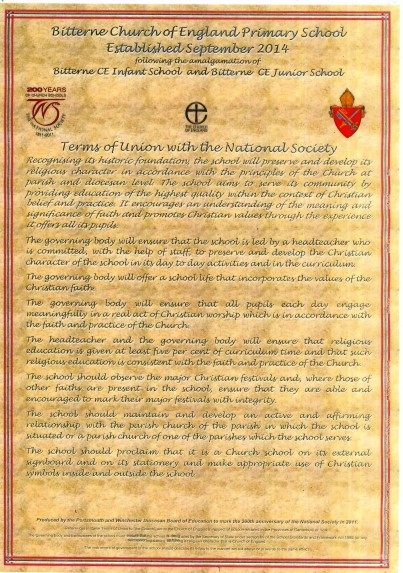 Bitterne Church of England Primary School
Established September 2014
following the amalgamation of
Bitterne CE Infant School and Bitterne CE Junior School
200 YEARS
OF CHURCH SCHOOLS
THE NATIONAL SOCIETY
1811-2011
THE CHURCH
OF ENGLAND
Terms of Union with the National Society
Recognising its historic foundation, the school will preserve and develop its
religious character in accordance with the principles of the Church at
parish and diocesan level. The school aims to serve its community by
providing education of the highest quality within the context of Christian
belief and practice. It encourages an understanding of the meaning and
significance of faith and promotes Christian values through the experience
it offers all its pupils.
The governing body will ensure that the school is led by a headteacher who
is committed, with the help of staff, to preserve and develop the Christian
character of the school in its day to day activities and in the curriculum.
The governing body will offer a school life that incorporates the values of the
Christian faith.
The governing body will ensure that all pupils each day engage
meaningfully in a real act of Christian worship which is in accordance with
the faith and practice of the Church.
The headteacher and the governing body will ensure that religious
education is given at least five per cent of curriculum time and that such
religious education is consistent with the faith and practice of the Church.
The school should observe the major Christian festivals and, where those of
other faiths are present in the school, ensure that they are able and
encouraged to mark their major festivals with integrity.
The school should maintain and develop an active and affirming
relationship with the parish church of the parish in which the school is
situated or a parish church of one of the parishes which the school serves.
The school should proclaim that it is a Church school on its external
signboard and on its stationery and make appropriate use of Christian
symbols inside and outside the school.
Produced by the Portsmouth and Winchester Diocesan Board of Education to mark the 200th anniversary of the National Society in 2011.